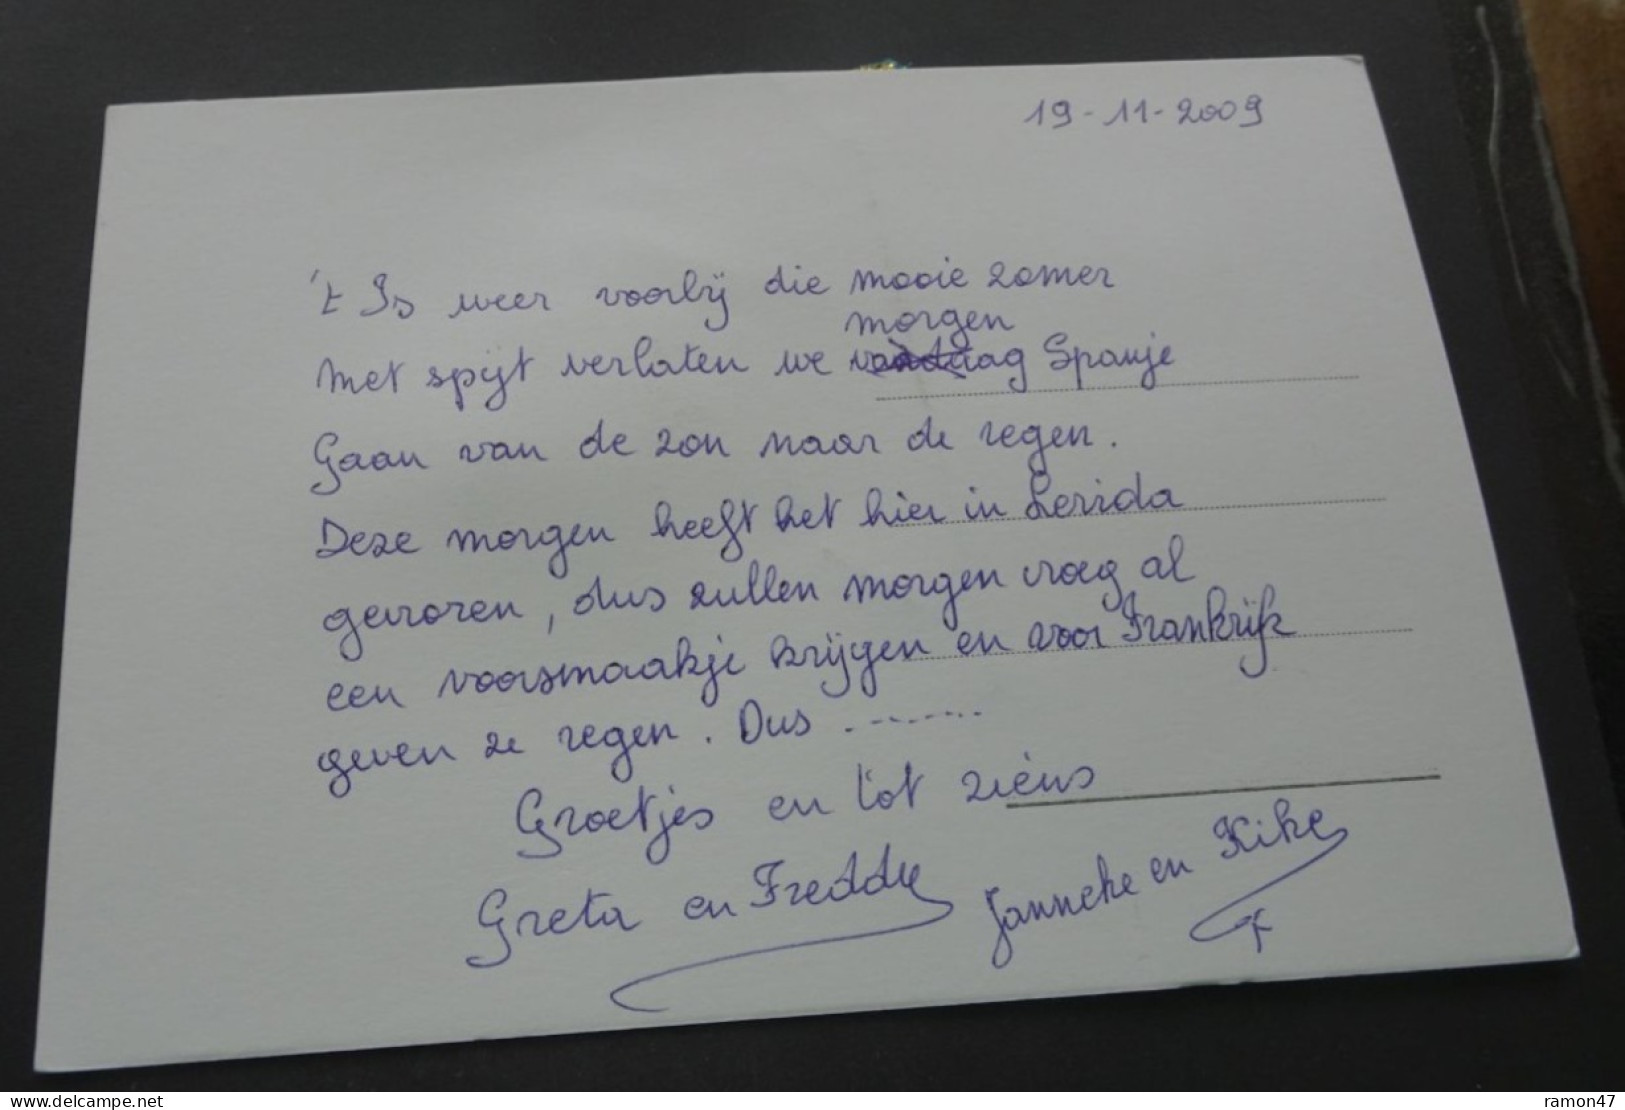 19-11-2009
't Is weer voorbij die mooie zomer
morgen
Met spijt verlaten we vandaag Spanje
Gaan van de zon naar de regen.
Deze morgen heeft het hier in Lerida
gevroren, dus zullen morgen vroeg al
een voorsmaakje krijgen en voor Frankrijk
geven ze regen. Dus .-------
Groetjes en tot ziens
Greta en Freddy Janneke en Kike
www.delcampe.net
ramon47